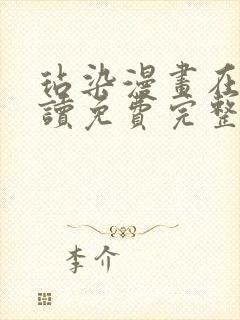 玷染漫畫在
讀免費完整
李介